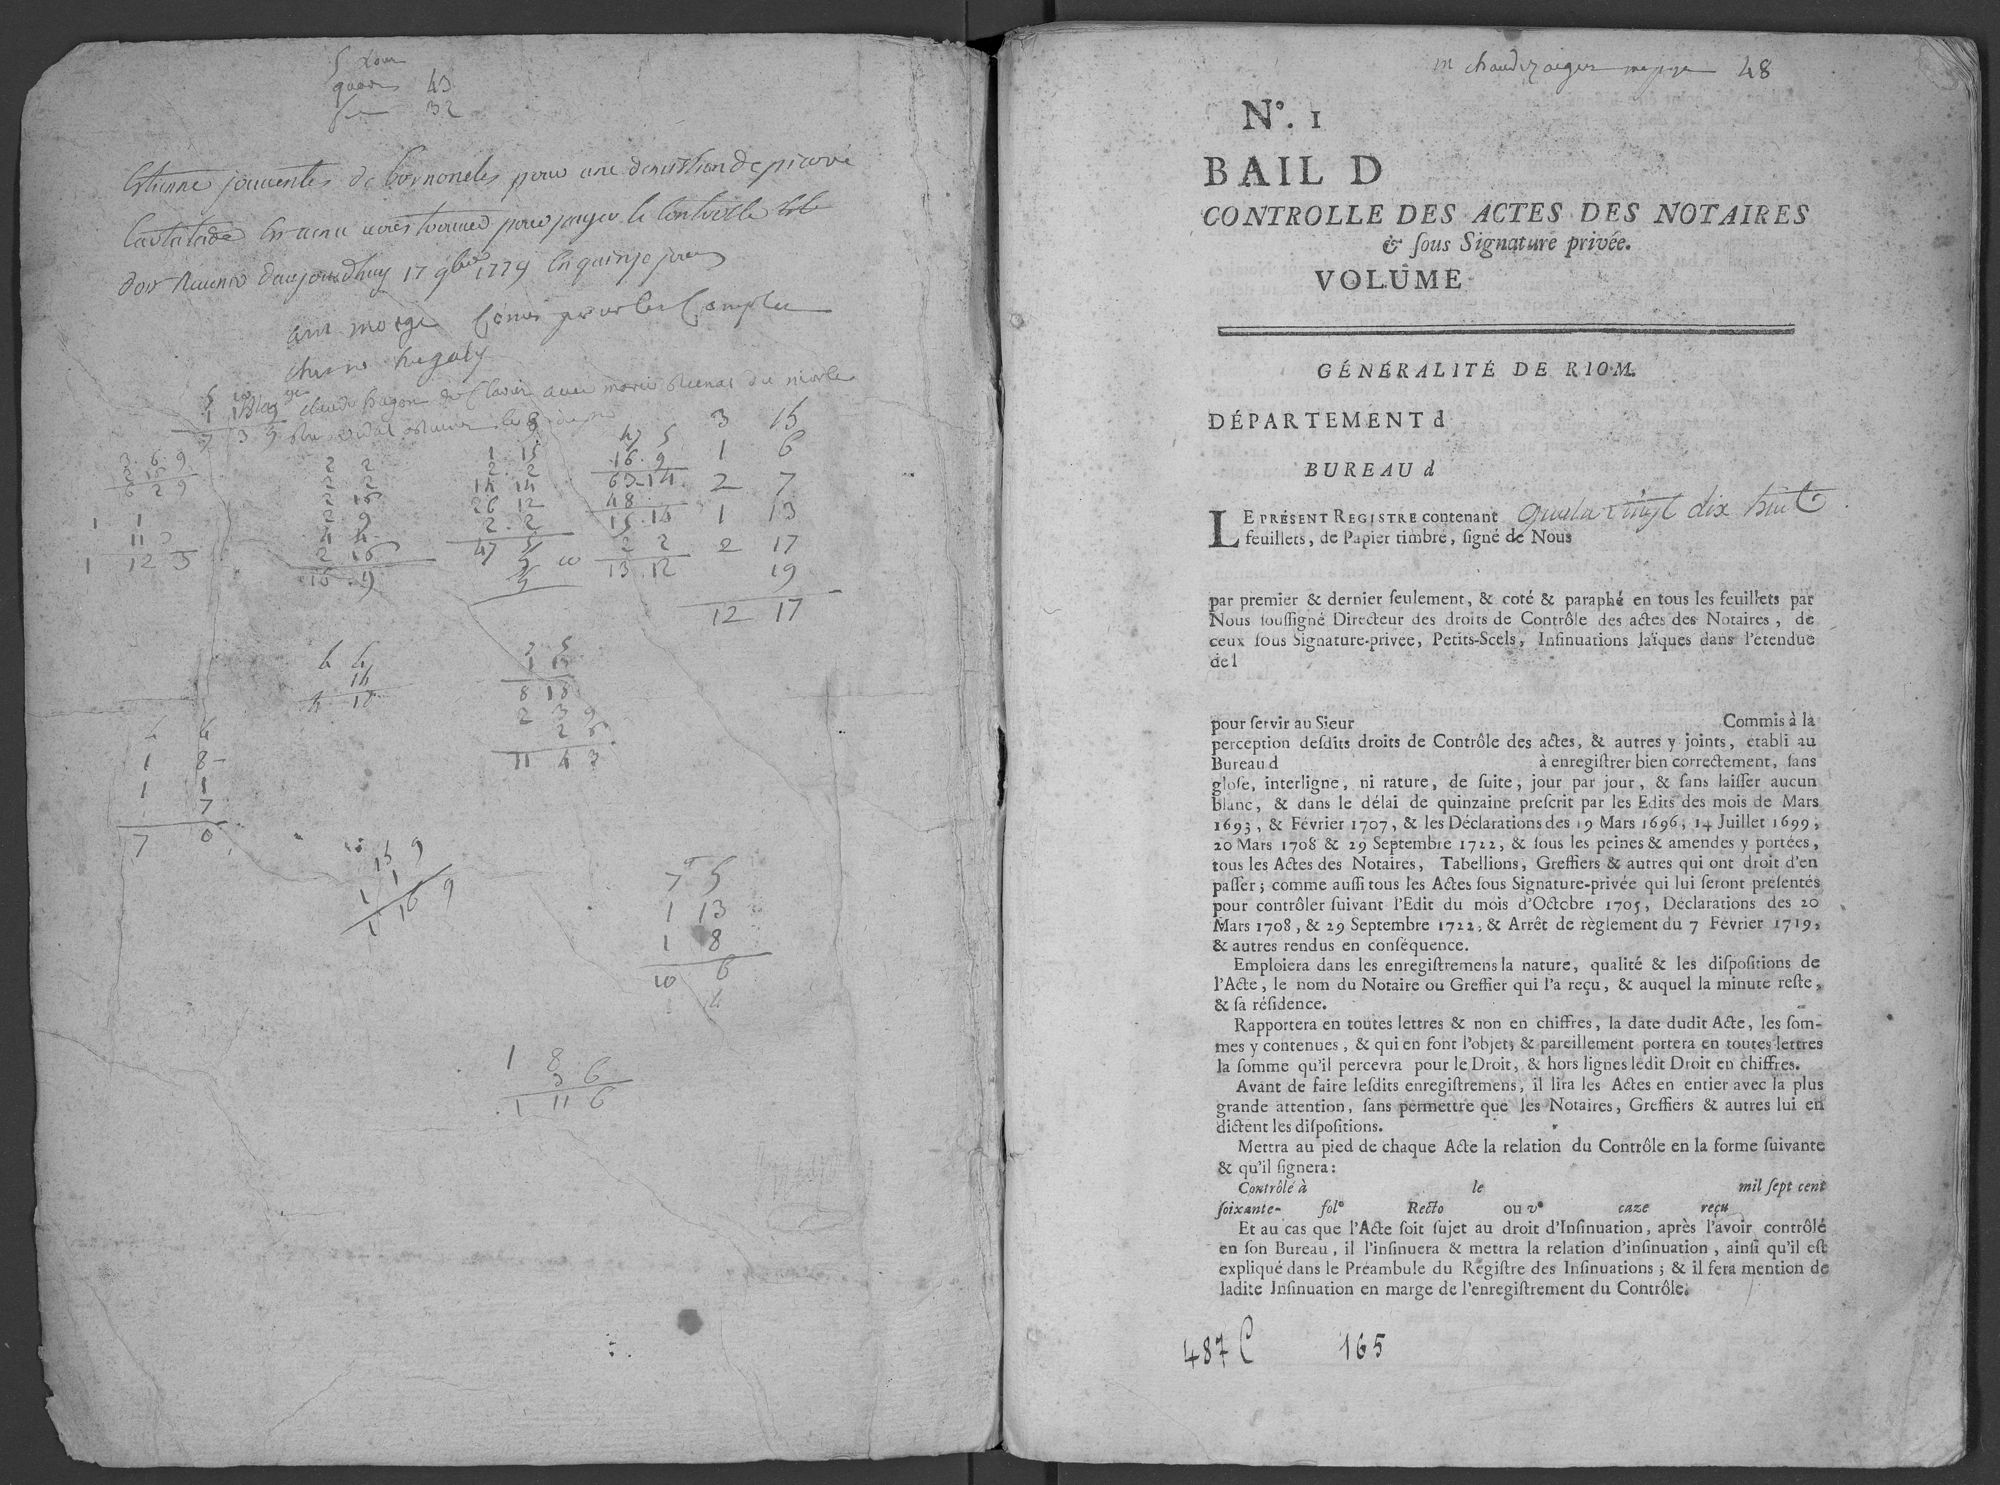 43
32
Etienne jouventes de pour une
pour payer le Controlle
daujourdhuy 17 9bre 1779 quinze jours
pour les
Claude avec marie
3 15
1 6
2 7
1 13
2 17
19
12 17
47 5
16 9
63 14
48
15 14
2 2
13 12
1 15
2 2
14 14
26 12
2 2
47 5
2 2
2 2
2 16
2 9
4 4
2 16
16 9
3 6 9
2 15
6 2 9
1 1
11 3
1 12 3
8 18
2 3 9
2 6
11 4 3
1 8
1 1
7
7 0
15 9
1 1
1 16 9
7 5
1 13
1 8
10 6
4
1 8 6
3
1 11 6
48
N°. 1
BAIL D
CONTROLLE DES ACTES DES NOTAIRES
& sous Signature privée.
VOLUME
GÉNÉRALITÉ DE RIOM.
DÉPARTEMENT d
BUREAU d
LE PRÉSENT REGISTRE contenant vingt dix huit
feuillets, de Papier timbré, signé de Nous
par premier & dernier seulement, & coté & paraphé en tous les feuillets par
Nous soussigné Directeur des droits de Contrôle des actes des Notaires, de
ceux sous Signature-privée, Petits-Scels, Insinuations laïques dans l'étendue
de l
pour servir au Sieur Commis à la
perception desdits droits de Contrôle des actes, & autres y joints, établi au
Bureau d à enregistrer bien correctement, sans
glose, interligne, ni rature, de suite, jour par jour, & sans laisser aucun
blanc, & dans le délai de quinzaine prescrit par les Edits des mois de Mars
1693, & Février 1707, & les Déclarations des 19 Mars 1696, 14 Juillet 1699,
20 Mars 1708 & 29 Septembre 1722, & sous les peines & amendes y portées,
tous les Actes des Notaires, Tabellions, Greffiers & autres qui ont droit d'en
passer; comme aussi tous les Actes sous Signature-privée qui lui seront présentés
pour contrôler suivant l'Edit du mois d'Octobre 1705, Déclarations des 20
Mars 1708, & 29 Septembre 1722, & Arrêt de règlement du 7 Février 1719,
& autres rendus en conséquence.
Emploiera dans les enregistremens la nature, qualité & les dispositions de
l'Acte, le nom du Notaire ou Greffier qui l'a reçu, & auquel la minute reste,
& sa résidence.
Rapportera en toutes lettres & non en chiffres, la date dudit Acte, les som-
mes y contenues, & qui en font l'objet, & pareillement portera en toutes lettres
la somme qu'il percevra pour le Droit, & hors lignes ledit Droit en chiffres.
Avant de faire lesdits enregistremens, il lira les Actes en entier avec la plus
grande attention, sans permettre que les Notaires, Greffiers & autres lui en
dictent les dispositions.
Mettra au pied de chaque Acte la relation du Contrôle en la forme suivante
& qu'il signera:
Contrôlé à le mil sept cent
soixante- fol° Recto ou v° caze reçu
Et au cas que l'Acte soit sujet au droit d'Insinuation, après l'avoir contrôlé
en son Bureau, il l'insinuera & mettra la relation d'insinuation, ainsi qu'il est
expliqué dans le Préambule du Registre des Insinuations; & il fera mention de
ladite Insinuation en marge de l'enregistrement du Contrôle.
487 C 165